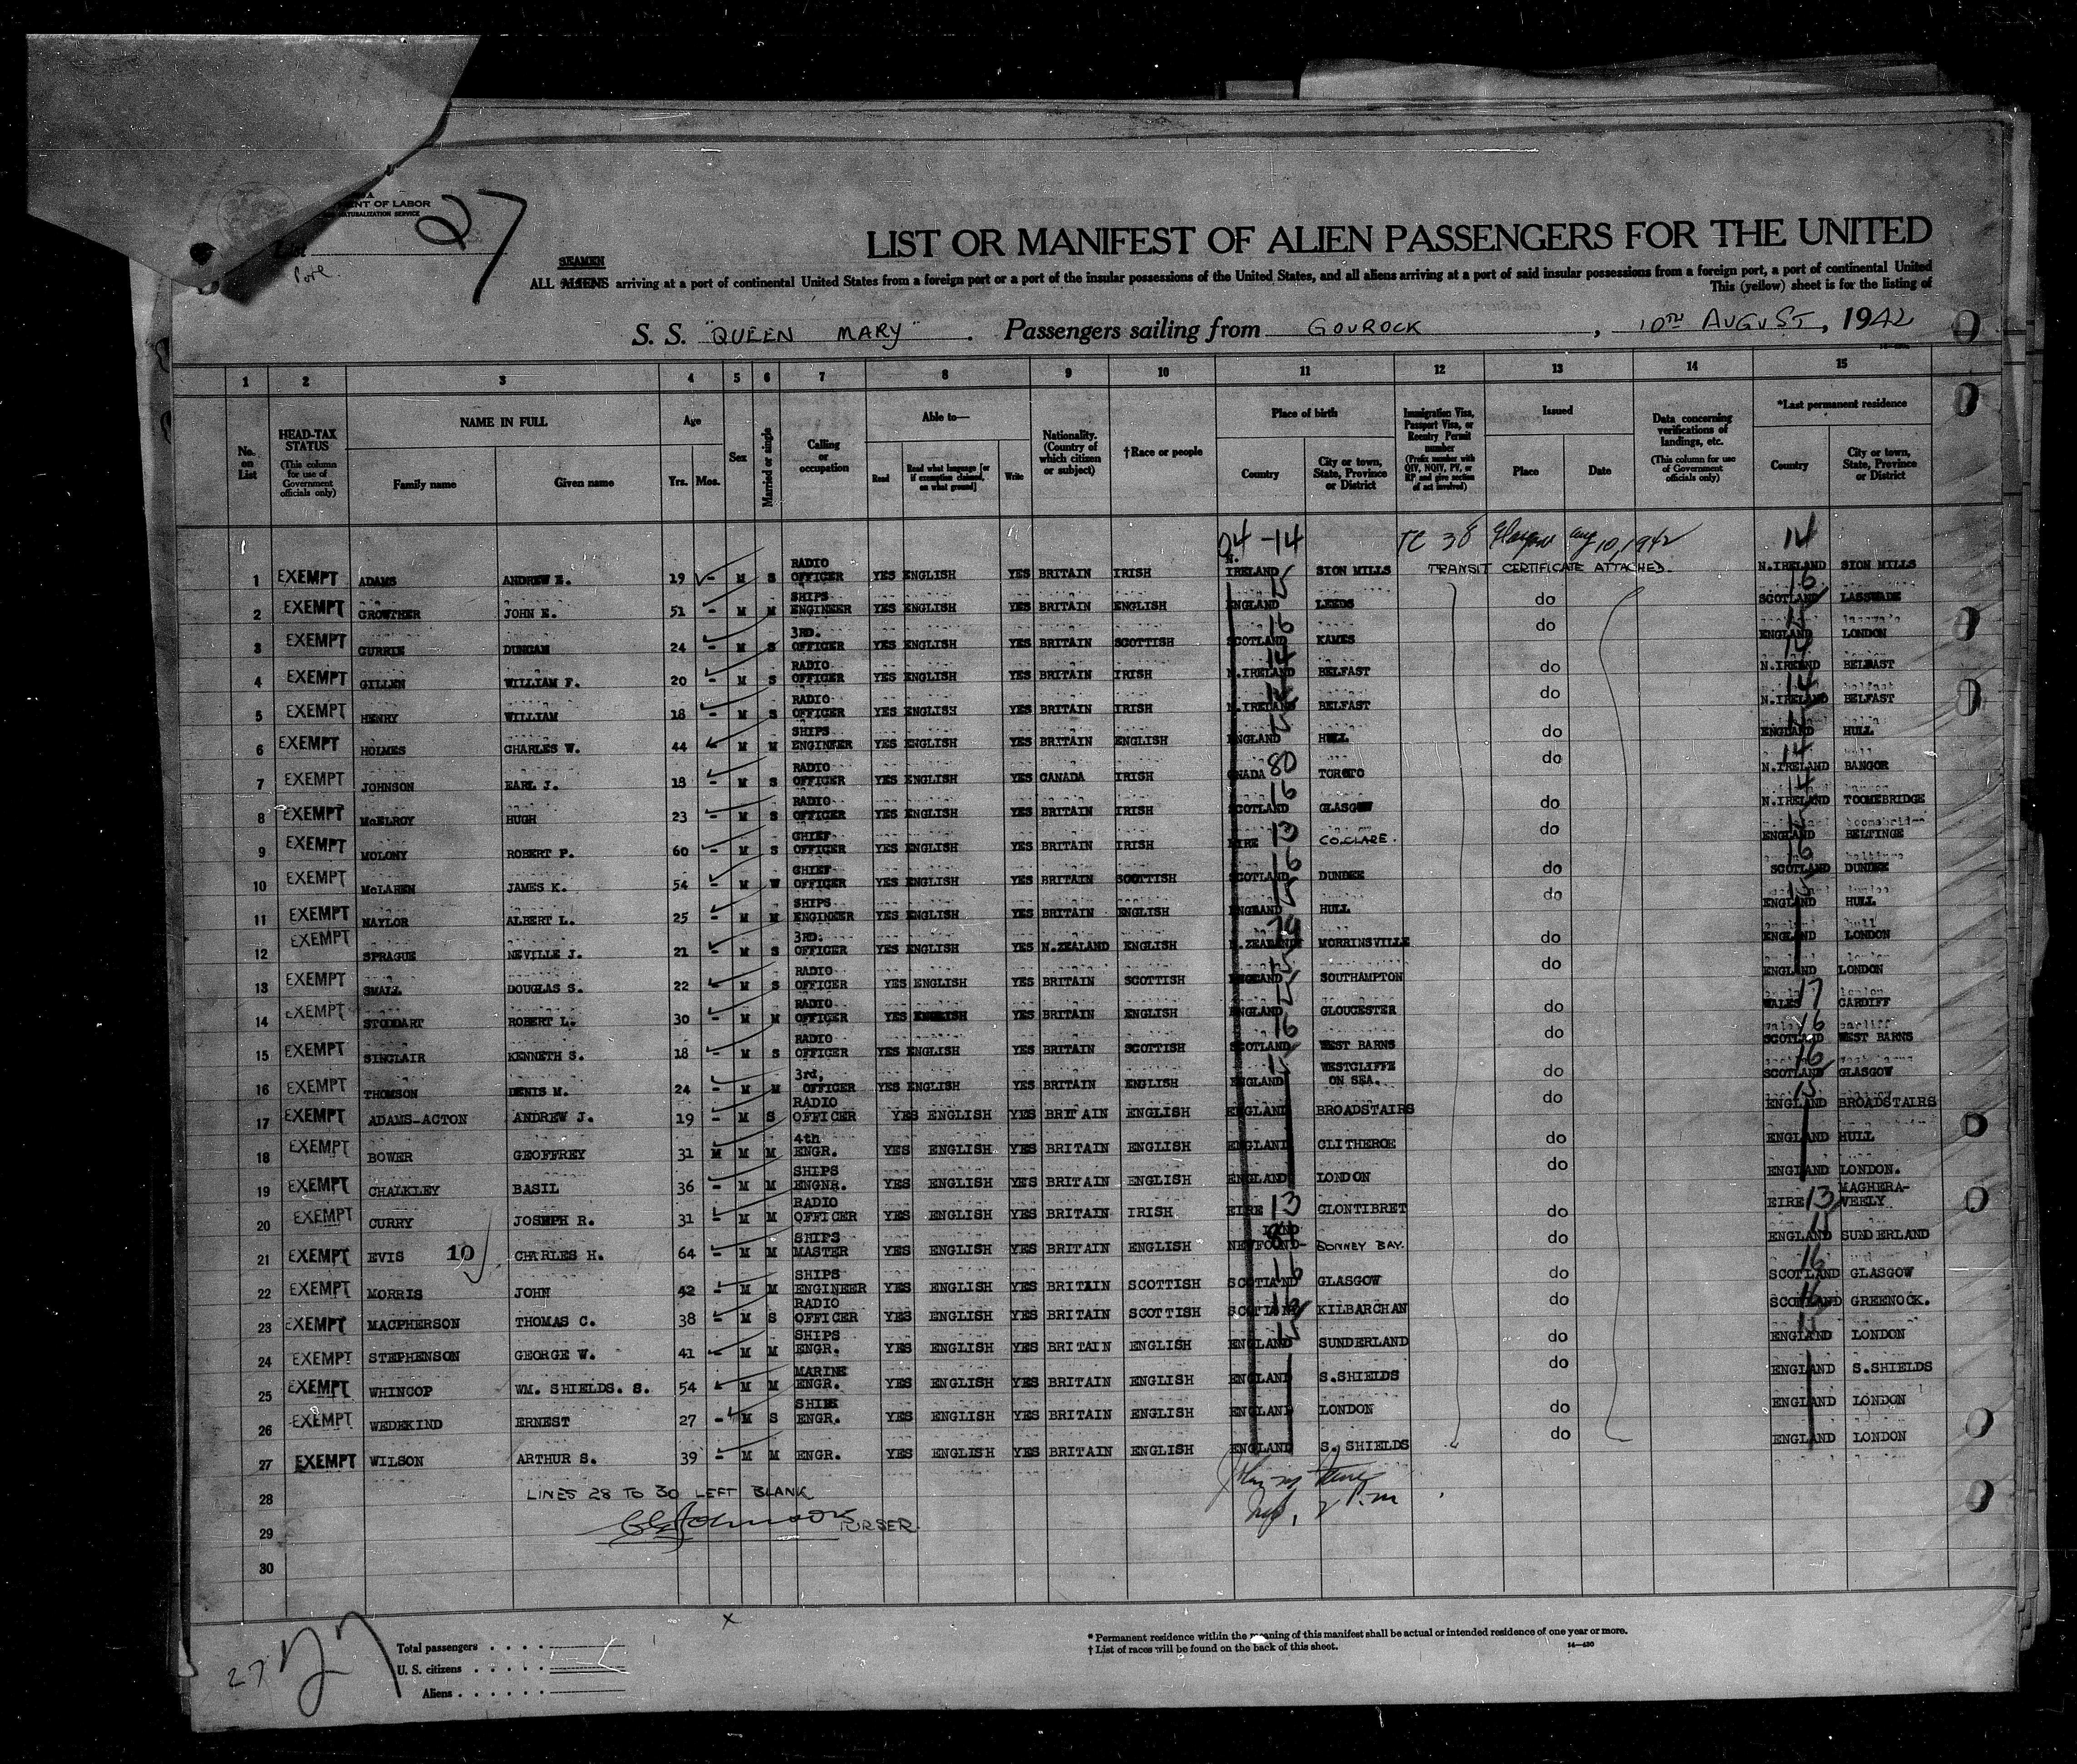 MENT OF LABOR
NATURALIZATION SERVICE
27
List
LIST OR MANIFEST OF ALIEN PASSENGERS FOR THE UNITED
SEAMEN
ALL ALIENS arriving at a port of continental United States from a foreign port or a port of the insular possessions of the United States, and all aliens arriving at a port of said insular possessions from a foreign port, a port of continental United
This (yellow) sheet is for the listing of
S. S. "QUEEN MARY". Passengers sailing from GOUROCK, 10TH AUGUST, 1942
1 2 3 4 5 6 7 8 9 10 11 12 13 14 15
No. on List
HEAD-TAX STATUS (This column for use of Government officials only)
NAME IN FULL Family name Given name
Age Yrs. Mos.
Sex
Married or single
Calling or occupation
Able to— Read Read what language [or if exemption claimed, on what ground] Write
Nationality. (Country of which citizen or subject)
†Race or people
Place of birth Country City or town, State, Province or District
Immigration Visa, Passport Visa, or Reentry Permit number (Prefix number with QIV, NQIV, PV, or RP and give section of act involved)
Issued Place Date
Data concerning verifications of landings, etc. (This column for use of Government officials only)
*Last permanent residence Country City or town, State, Province or District
04-14 Aug 10, 1942 14
1 EXEMPT ADAMS ANDREW E. 19 - M S RADIO OFFICER YES ENGLISH YES BRITAIN IRISH N. IRELAND SION MILLS TRANSIT CERTIFICATE ATTACHED. N.IRELAND SION MILLS
2 EXEMPT CROWTHER JOHN E. 51 - M M SHIPS ENGINEER YES ENGLISH YES BRITAIN ENGLISH ENGLAND 15 LEEDS do SCOTLAND 16 LASSWADE
3 EXEMPT CURRIE DUNCAN 24 - M S 3RD. OFFICER YES ENGLISH YES BRITAIN SCOTTISH SCOTLAND 16 KAMES do ENGLAND 15 LONDON
4 EXEMPT GILLEN WILLIAM F. 20 - M S RADIO OFFICER YES ENGLISH YES BRITAIN IRISH N.IRELAND 14 BELFAST do N.IRELND 14 BELFAST
5 EXEMPT HENRY WILLIAM 18 - M S RADIO OFFICER YES ENGLISH YES BRITAIN IRISH N.IRELAND 14 BELFAST do N.IRELAND 14 BELFAST
6 EXEMPT HOLMES CHARLES W. 44 - M M SHIPS ENGINEER YES ENGLISH YES BRITAIN ENGLISH ENGLAND 15 HULL do ENGLAND HULL
7 EXEMPT JOHNSON EARL J. 18 - M S RADIO OFFICER YES ENGLISH YES CANADA IRISH CNADA 80 TOROTO do N.IRELAND 14 BANGOR
8 EXEMPT McELROY HUGH 23 - M S RADIO OFFICER YES ENGLISH YES BRITAIN IRISH SCOTLAND 16 GLASGOW do N.IRELAND 14 TOOMEBRIDGE
9 EXEMPT MOLONY ROBERT P. 60 - M S CHIEF OFFICER YES ENGLISH YES BRITAIN IRISH EIRE 13 CO.CLARE. do ENGLAND 15 BELTINGE
10 EXEMPT McLAREN JAMES K. 54 - M W CHIEF OFFICER YES ENGLISH YES BRITAIN SCOTTISH SCOTLAND 16 DUNDEE do SCOTLAND 16 DUNDEE
11 EXEMPT NAYLOR ALBERT L. 25 - M M SHIPS ENGINEER YES ENGLISH YES BRITAIN ENGLISH ENGLAND 15 HULL do ENGLAND 15 HULL
12 EXEMPT SPRAGUE NEVILLE J. 21 - M S 3RD. OFFICER YES ENGLISH YES N.ZEALAND ENGLISH N.ZEALAND MORRINSVILLE do ENGLAND LONDON
13 EXEMPT SMALL DOUGLAS S. 22 - M S RADIO OFFICER YES ENGLISH YES BRITAIN SCOTTISH ENGLAND 15 SOUTHAMPTON do ENGLAND LONDON
14 EXEMPT STODDART ROBERT L. 30 - M M RADIO OFFICER YES ENGLISH YES BRITAIN ENGLISH ENGLAND 15 GLOUCESTER do WALES 17 CARDIFF
15 EXEMPT SINCLAIR KENNETH S. 18 - M S RADIO OFFICER YES ENGLISH YES BRITAIN SCOTTISH SCOTLAND 16 WEST BARNS do SCOTLAND 16 WEST BARNS
16 EXEMPT THOMSON DENIS M. 24 - M M 3rd, OFFICER YES ENGLISH YES BRITAIN ENGLISH ENGLAND 15 WESTCLIFFE ON SEA. do SCOTLAND 16 GLASGOW
17 EXEMPT ADAMS-ACTON ANDREW J. 19 - M S RADIO OFFICER YES ENGLISH YES BRITAIN ENGLISH ENGLAND BROADSTAIRS do ENGLAND 15 BROADSTAIRS
18 EXEMPT BOWER GEOFFREY 31 M M M 4th ENGR. YES ENGLISH YES BRITAIN ENGLISH ENGLAND CLITHEROE do ENGLAND HULL
19 EXEMPT CHALKLEY BASIL 36 - M M SHIPS ENGNR. YES ENGLISH YES BRITAIN ENGLISH ENGLAND LONDON do ENGLAND LONDON.
20 EXEMPT CURRY JOSEPH R. 31 - M M RADIO OFFICER YES ENGLISH YES BRITAIN IRISH EIRE 13 CLONTIBRET do EIRE 13 MAGHERA-VEELY
21 EXEMPT EVIS 10 CHARLES H. 64 - M M SHIPS MASTER YES ENGLISH YES BRITAIN ENGLISH NEWFOUND-LAND BONNEY BAY. do ENGLAND 15 SUNDERLAND
22 EXEMPT MORRIS JOHN 42 - M M SHIPS ENGINEER YES ENGLISH YES BRITAIN SCOTTISH SCOTLAND 16 GLASGOW do SCOTLAND 16 GLASGOW
23 EXEMPT MACPHERSON THOMAS C. 38 - M S RADIO OFFICER YES ENGLISH YES BRITAIN SCOTTISH SCOTLAND 16 KILBARCHAN do SCOTLAND 16 GREENOCK.
24 EXEMPT STEPHENSON GEORGE W. 41 - M M SHIPS ENGR. YES ENGLISH YES BRITAIN ENGLISH ENGLAND 15 SUNDERLAND do ENGLAND 15 LONDON
25 EXEMPT WHINCOP WM. SHIELDS. S. 54 - M M MARINE ENGR. YES ENGLISH YES BRITAIN ENGLISH ENGLAND S.SHIELDS do ENGLAND S.SHIELDS
26 EXEMPT WEDEKIND ERNEST 27 - M S SHIPS ENGR. YES ENGLISH YES BRITAIN ENGLISH ENGLAND LONDON do ENGLAND LONDON
27 EXEMPT WILSON ARTHUR S. 39 - M M ENGR. YES ENGLISH YES BRITAIN ENGLISH ENGLAND S. SHIELDS do ENGLAND LONDON
28 LINES 28 TO 30 LEFT BLANK
29 Johnson PURSER.
30
27 27
Total passengers
U. S. citizens
Aliens
* Permanent residence within the meaning of this manifest shall be actual or intended residence of one year or more.
† List of races will be found on the back of this sheet.
14—430